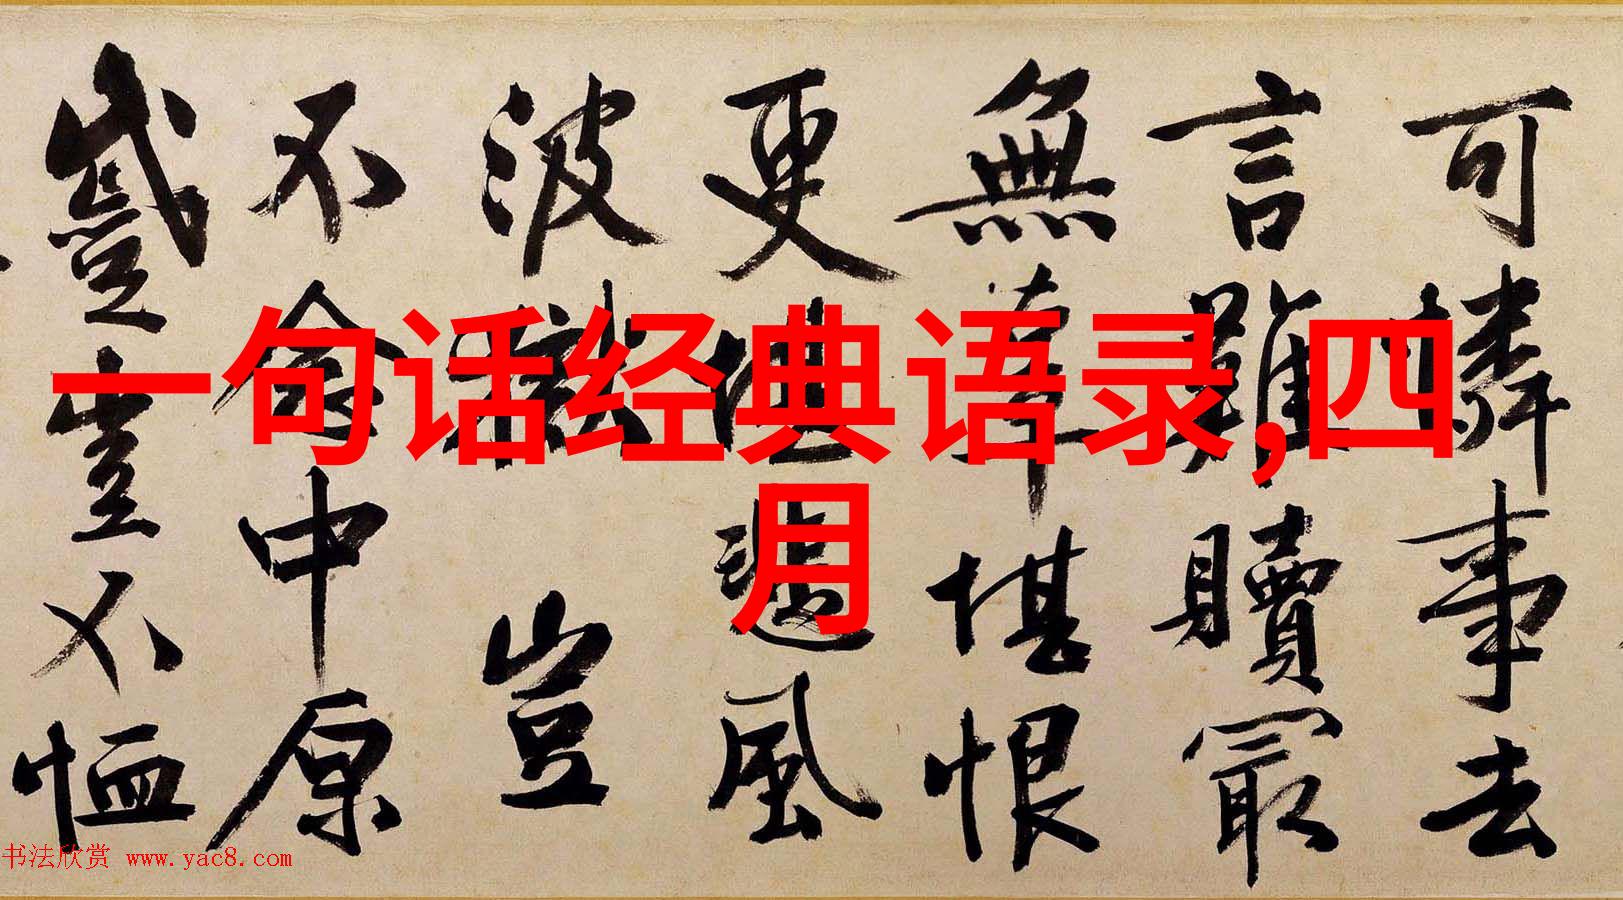 可憐事去
言難贖冣
無辜堪恨
更悲風
波獄豈
不念中原
蹙豈不恤
一句话经典语录,四
月
书法欣赏 www.yac8.com